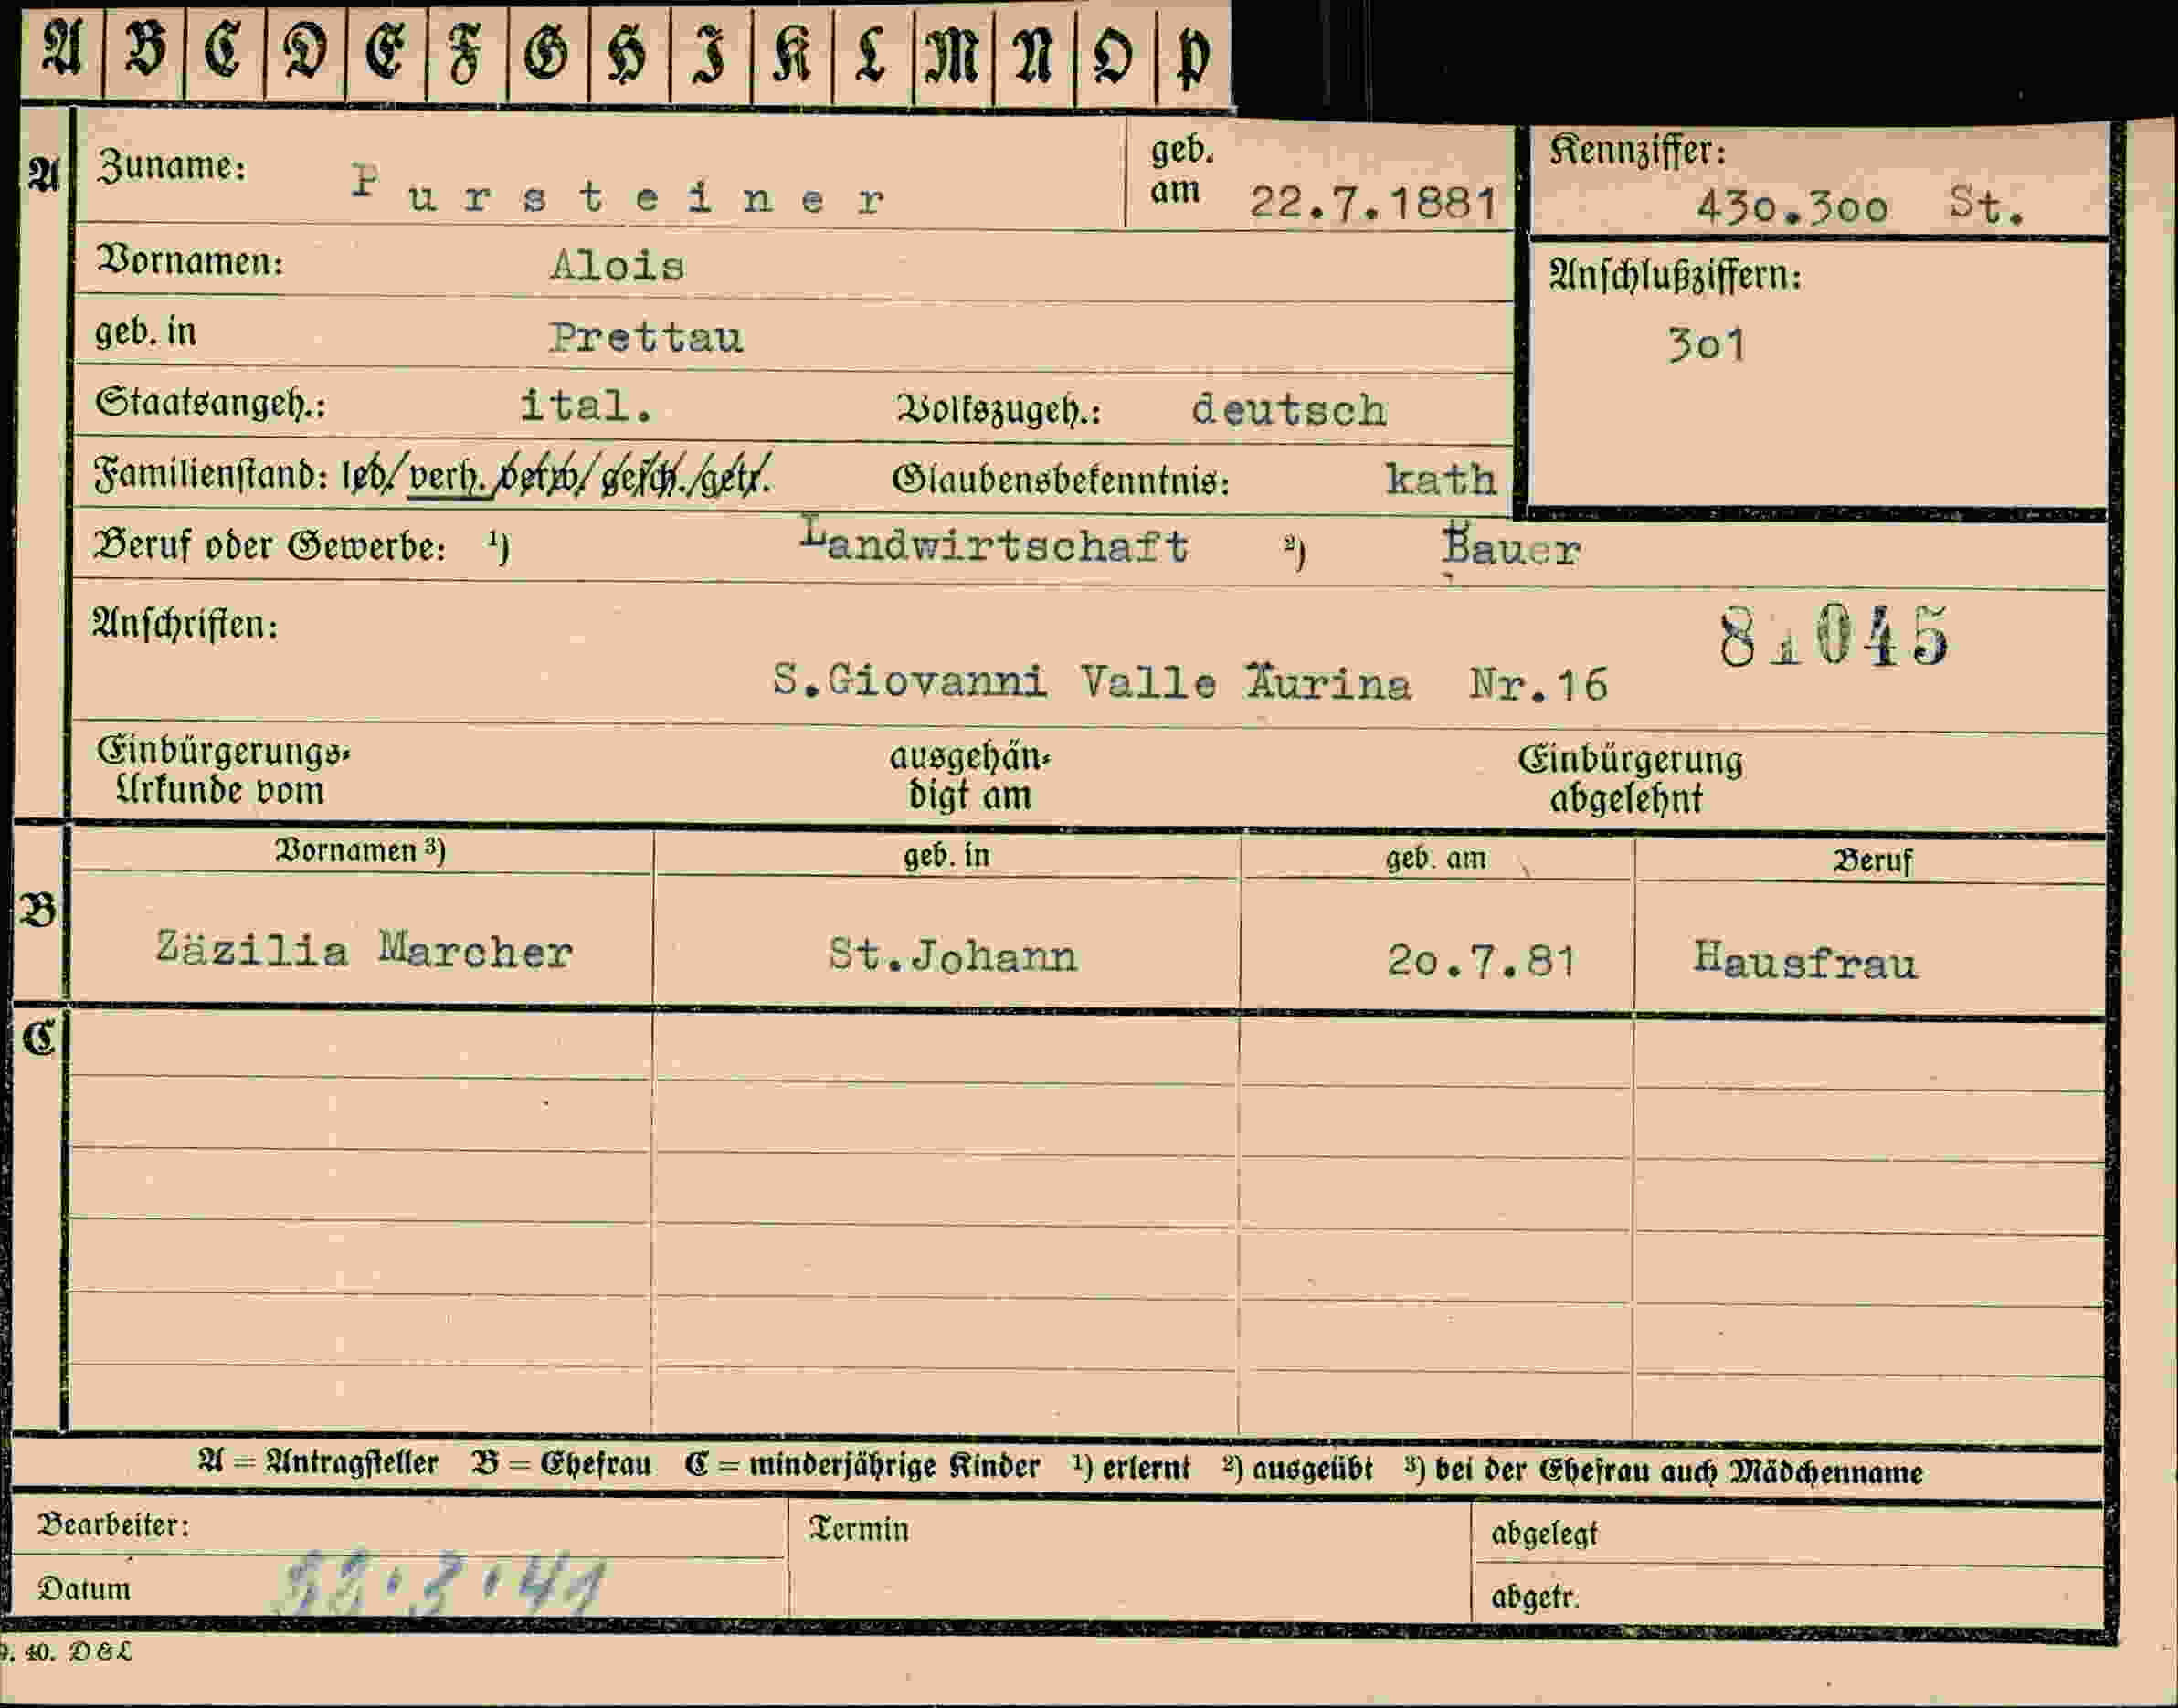 A B C D E F G H I K L M N O P
A Zuname: Pursteiner geb. am 22.7.1881 Kennziffer: 430.300 St.
Vornamen: Alois Anschlußziffern:
geb. in Prettau 301
Staatsangeh.: ital. Volkszugeh.: deutsch
Familienstand: led/ verh. verw/ gesch./getr. Glaubensbekenntnis: kath
Beruf oder Gewerbe: ¹) Landwirtschaft ²) Bauer
Anschriften: 81045
S.Giovanni Valle Aurina Nr.16
Einbürgerungs- ausgehän- Einbürgerung
Urkunde vom digt am abgelehnt
Vornamen ³) geb. in geb. am Beruf
B Zäzilia Marcher St.Johann 20.7.81 Hausfrau
C
A = Antragsteller B = Ehefrau C = minderjährige Kinder ¹) erlernt ²) ausgeübt ³) bei der Ehefrau auch Mädchenname
Bearbeiter: Termin abgelegt
Datum abgetr.
40. D&L